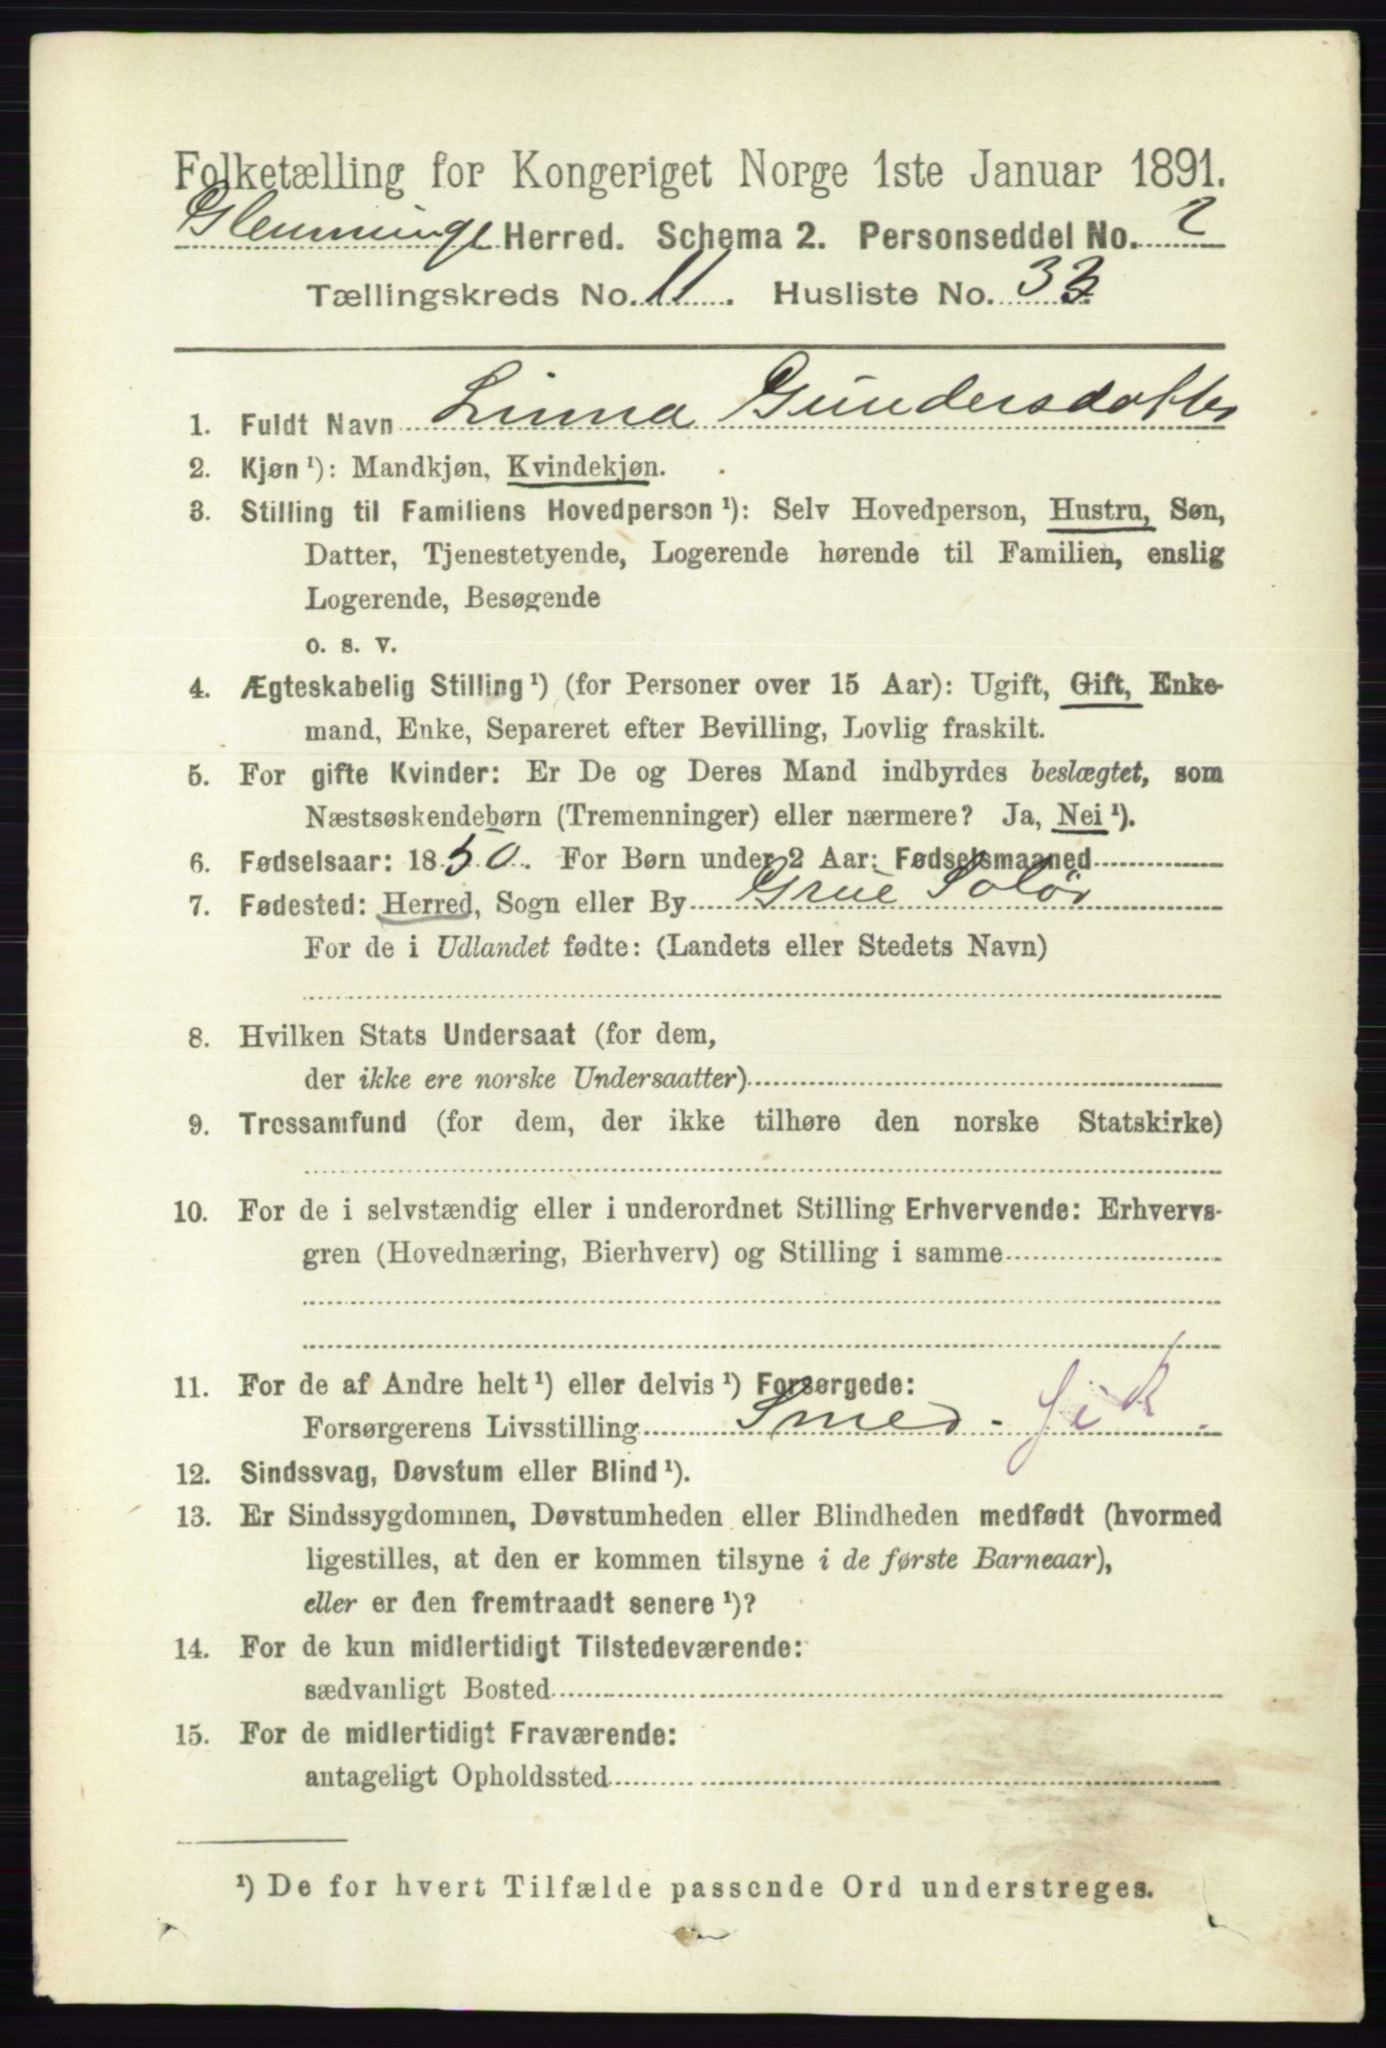 Folketælling for Kongeriget Norge 1ste Januar 1891.
Glemminge Herred. Schema 2. Personseddel No. 2
Tællingskreds No. 11. Husliste No. 33.
1. Fuldt Navn Linna Gundersdatter
2. Kjøn ¹): Mandkjøn, Kvindekjøn.
3. Stilling til Familiens Hovedperson ¹): Selv Hovedperson, Hustru, Søn,
Datter, Tjenestetyende, Logerende hørende til Familien, enslig
Logerende, Besøgende
o. s. v.
4. Ægteskabelig Stilling ¹) (for Personer over 15 Aar): Ugift, Gift, Enke-
mand, Enke, Separeret efter Bevilling, Lovlig fraskilt.
5. For gifte Kvinder: Er De og Deres Mand indbyrdes beslægtet, som
Næstsøskendebørn (Tremenninger) eller nærmere? Ja, Nei ¹).
6. Fødselsaar: 1850. For Børn under 2 Aar: Fødselsmaaned
7. Fødested: Herred, Sogn eller By Grue Solör
For de i Udlandet fødte: (Landets eller Stedets Navn)
8. Hvilken Stats Undersaat (for dem,
der ikke ere norske Undersaatter)
9. Trossamfund (for dem, der ikke tilhøre den norske Statskirke)
10. For de i selvstændig eller i underordnet Stilling Erhvervende: Erhvervs-
gren (Hovednæring, Bierhverv) og Stilling i samme
11. For de af Andre helt ¹) eller delvis ¹) Forsørgede:
Forsørgerens Livsstilling Smed.
12. Sindssvag, Døvstum eller Blind ¹).
13. Er Sindssygdommen, Døvstumheden eller Blindheden medfødt (hvormed
ligestilles, at den er kommen tilsyne i de første Barneaar),
eller er den fremtraadt senere ¹)?
14. For de kun midlertidigt Tilstedeværende:
sædvanligt Bosted
15. For de midlertidigt Fraværende:
antageligt Opholdssted
¹) De for hvert Tilfælde passende Ord understreges.